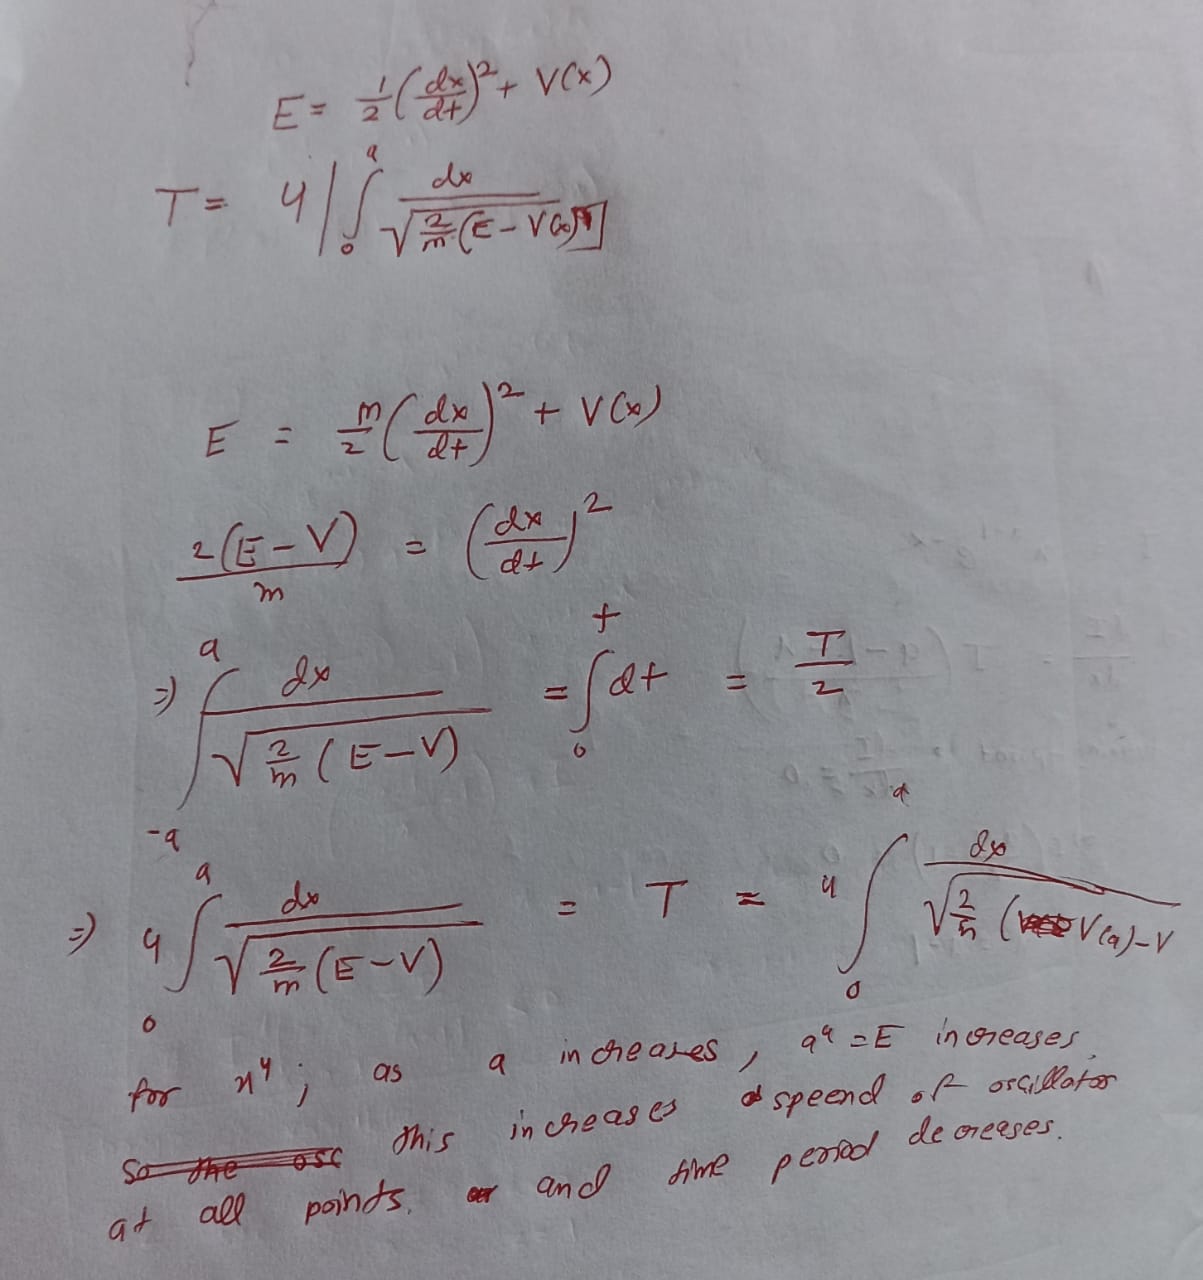 E = 1/2 (dx/dt)² + V(x)
T = 4 ∫₀ᵃ dx / √(2/m (E - V(x))]
E = m/2 (dx/dt)² + V(x)
2(E - V)/m = (dx/dt)²
⇒) ∫₋ₐᵃ dx / √(2/m (E - V)) = ∫₀ᵗ dt = T/2
⇒) 4 ∫₀ᵃ dx / √(2/m (E - V)) = T = 4 ∫₀ᵃ dx / √(2/m (V(a) - V
for x⁴; as a increases, a⁴ = E increases.
So the osc this increases speend of oscillator
at all points. and time period decreases.